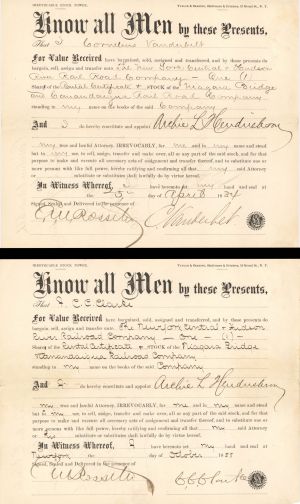 IRREVOCABLE STOCK POWER.
Know all Men by these Presents,
That I Cornelius Vanderbilt
For Value Received have bargained, sold, assigned and transferred, and by these presents do
bargain, sell, assign and transfer unto The New York Central & Hudson
River Rail Road Company – One (1)
Share of the Certificate STOCK of the Niagara Bridge
and Canandaigua Rail Road Company
standing in my name on the books of the said Company
And I do hereby constitute and appoint Archie L. Hendrickson
my true and lawful Attorney, IRREVOCABLY, for me and in my name and stead
but to my use, to sell, assign, transfer and make over, all or any part of the said stock, and for that
purpose to make and execute all necessary acts of assignment and transfer thereof, and to substitute one
or more persons with like full power, hereby ratifying and confirming all that my said Attorney
or substitute or substitutes shall lawfully do by virtue hereof.
In Witness Whereof, I have hereunto set my hand and seal at
the April
Signed, Sealed and Delivered in the presence of
E. V. W. Rossiter C. Vanderbilt
IRREVOCABLE STOCK POWER.
Know all Men by these Presents,
That I, C. C. Clarke
For Value Received have bargained, sold, assigned and transferred, and by these presents do
bargain, sell, assign and transfer unto The New York Central & Hudson
River Railroad Company – One – (1) –
Share of STOCK of the Niagara Bridge
& Canandaigua Railroad Company
standing in my name on the books of the said Company
And I do hereby constitute and appoint Archie L. Hendrickson
my true and lawful Attorney, IRREVOCABLY, for me and in my name and stead
but to my use, to sell, assign, transfer and make over, all or any part of the said stock, and for that
purpose to make and execute all necessary acts of assignment and transfer thereof, and to substitute one
or more persons with like full power, hereby ratifying and confirming all that my said Attorney
or substitute or substitutes shall lawfully do by virtue hereof.
In Witness Whereof, I have hereunto set my hand and seal at
New York the October
Signed, Sealed and Delivered in the presence of
Rossiter C. C. Clarke